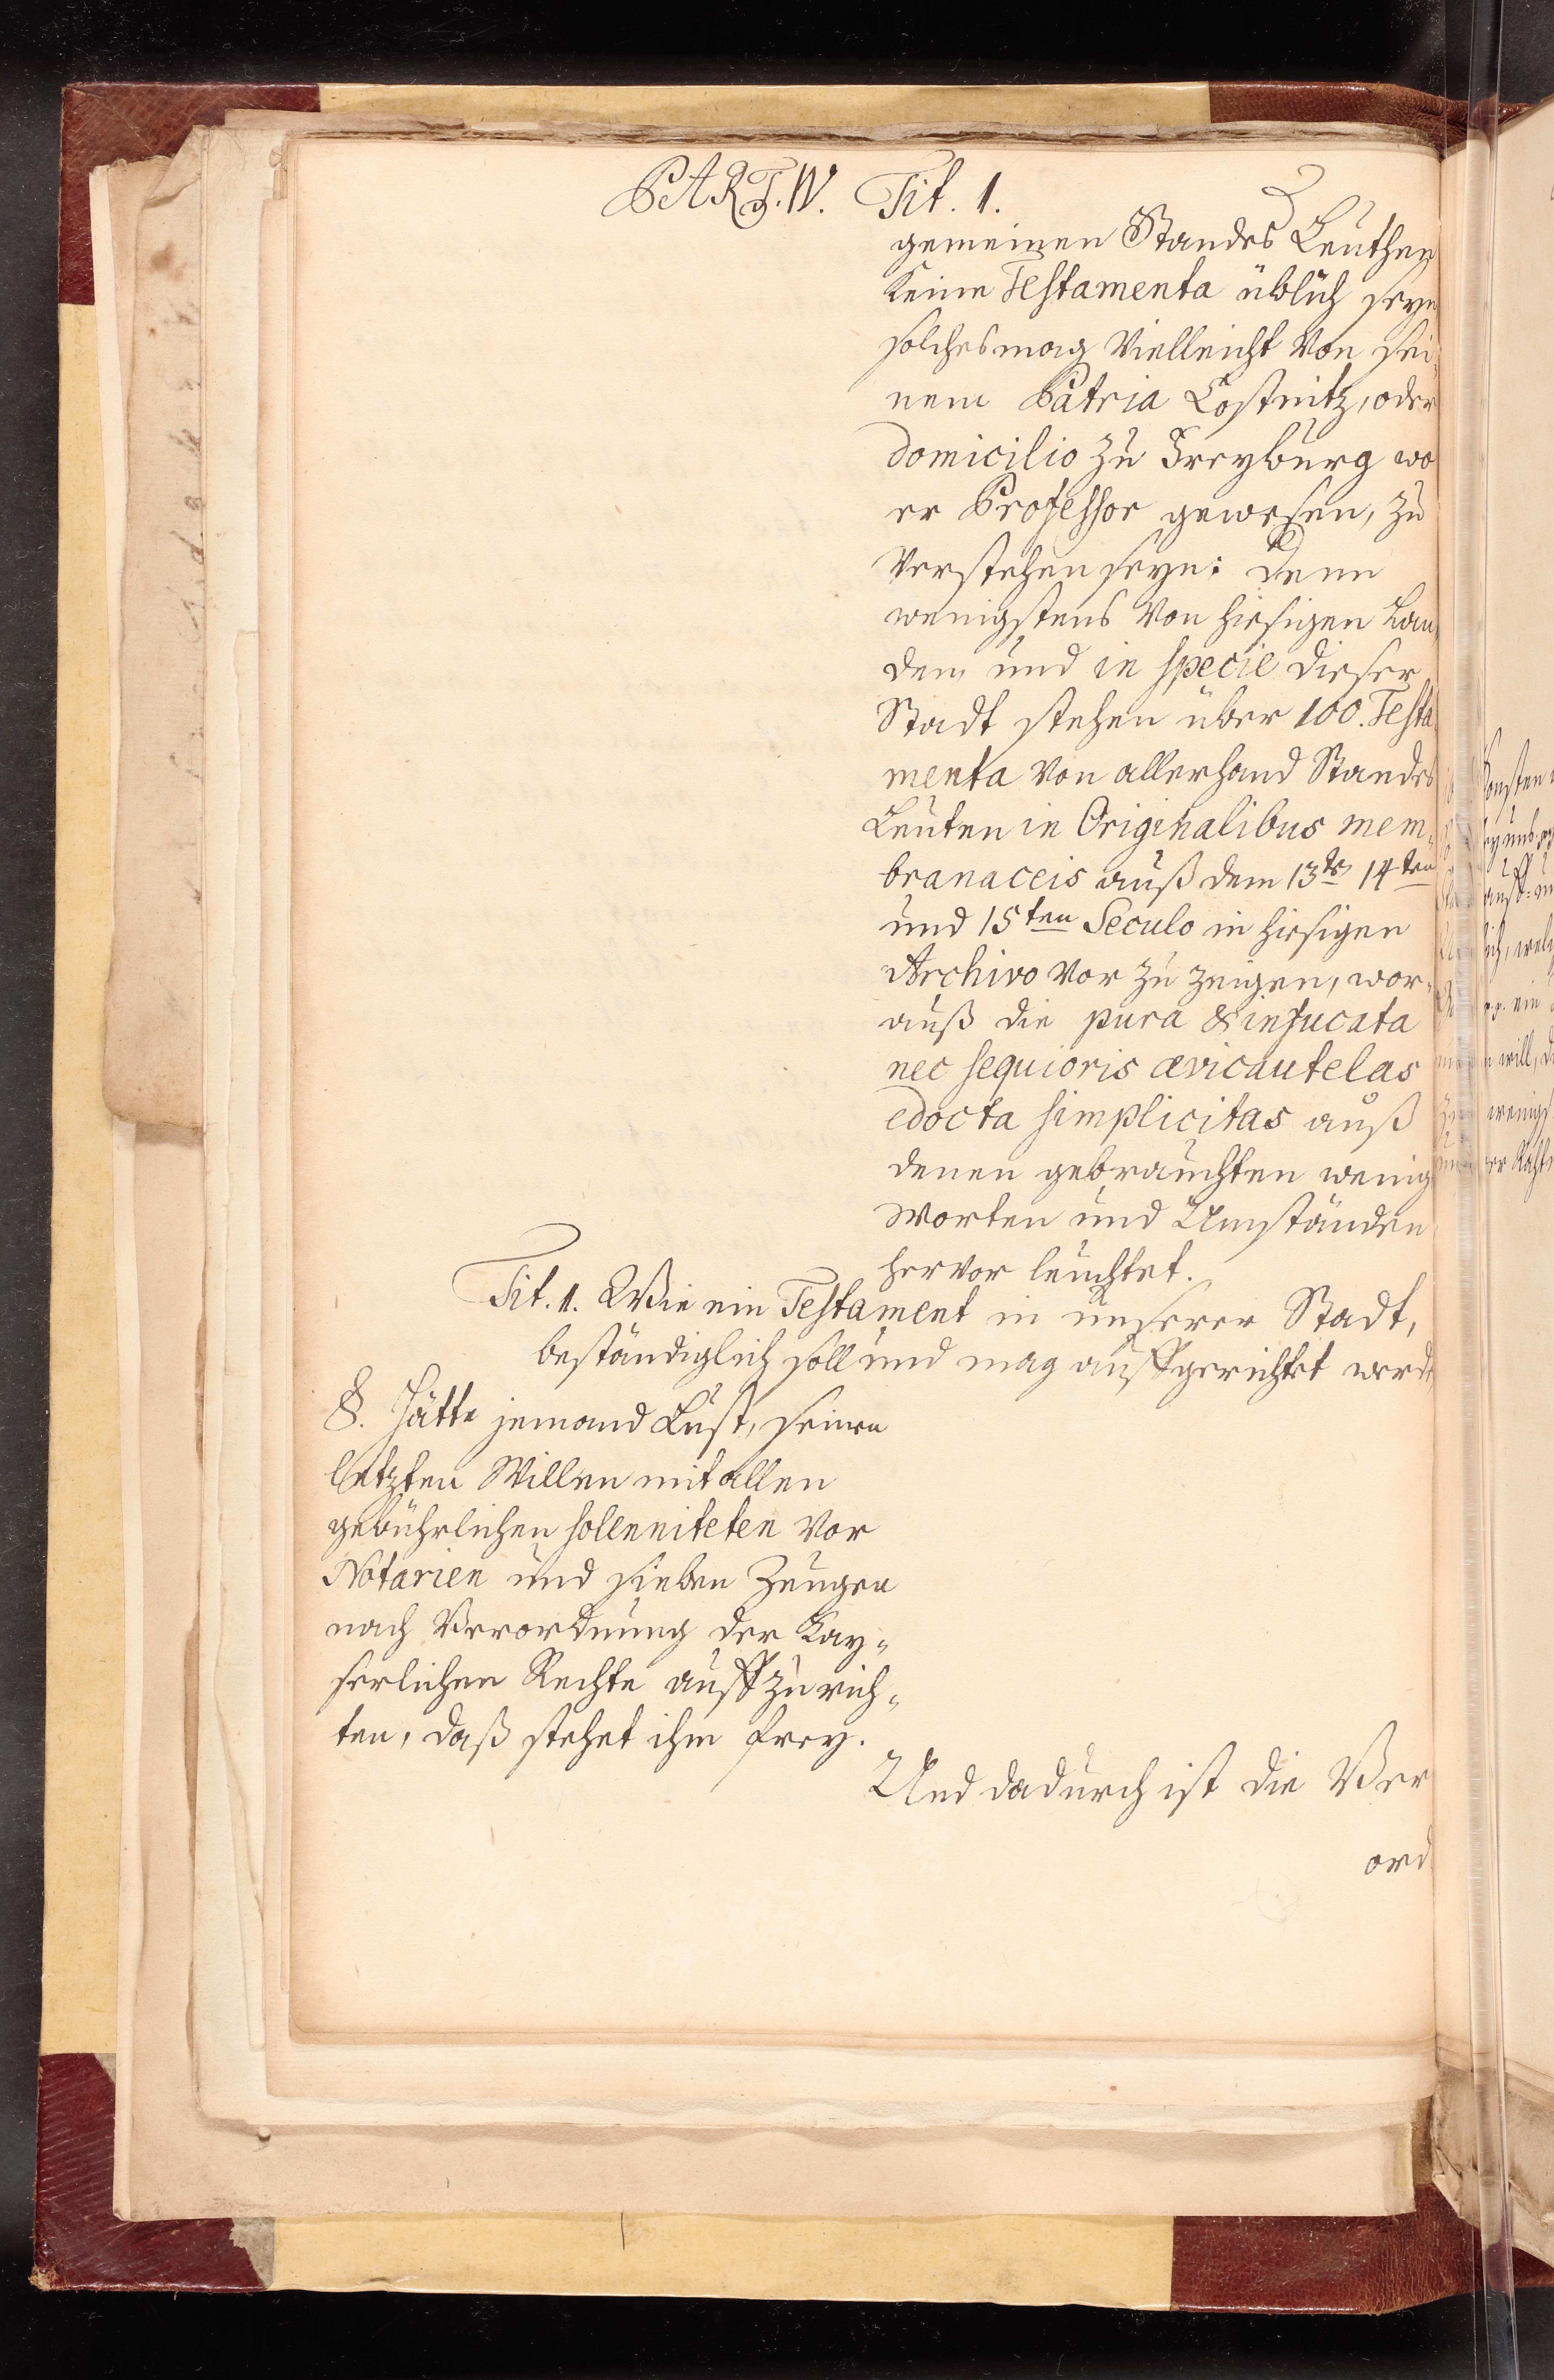 PART. IV. Tit. 1.
gemeinen Standes Leuthen
keine Testamenta üblich seyn
solches mag vielleicht von sei
nem Patria Costnitz, oder
domicilio zu Freyburg wo
er Professor gewesen, zu
verstehen seyn: denn
wenigstens von hiesigen Lan
den und in specie dieser
Stadt stehen über 100. Testa
menta von allerhand Standes
Leuten in Originalibus mem-
branaceis auß dem 13ten 14ten
und 15ten Seculo in hiesigen
Archivo vor zu zeigen, wor-
auß die pura & infucata
nec sequioris ævi cautelas
edocta simplicitas auß
denen gebrauchten wenig
Worten und Umständen
hervor leuchtet.
Tit. 1. Wie ein Testament in unserer Stadt,
beständiglich soll und mag auffgerichtet werde
§. Hätte jemand Lust, seinen
letzten Willen mit allen
gebührlichen solenniteten vor
Notarien und sieben Zeugen
nach Verordnung der Kay-
serlichen Rechte auffzurich-
ten, daß stehet ihm frey.
Und dadurch ist die Ver
ord